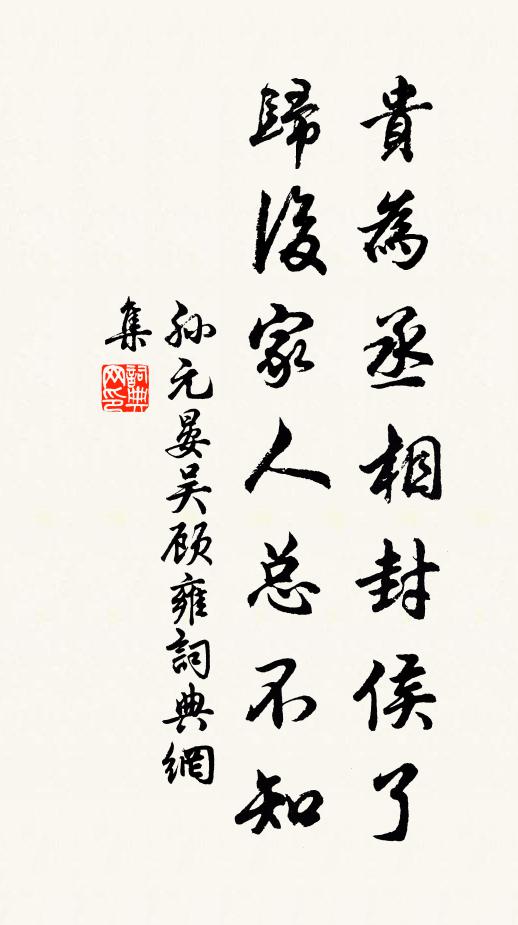 貴為丞相封侯了
歸後家人总不知
孙元晏吴顾雍詞典網
集
詞典
网印